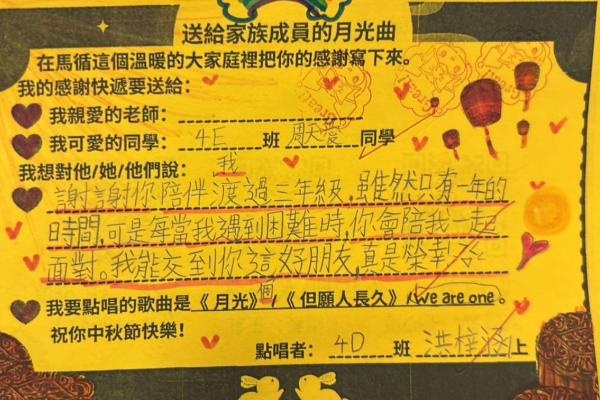 送給家族成員的月光曲
在馬循這個溫暖的大家庭裡把你的感謝寫下來。
我的感謝快遞要送給：
我親愛的老師：
我可愛的同學： 4E 班 周天愛 同學
我想對他/她/他們說：
我
謝謝你陪伴渡過三年級,雖然只有一年的
時間,可是每當我遇到困難時,你會陪我一起
面對。我能交到你這好朋友,真是榮幸
個
我要點唱的歌曲是《月光》/《但願人長久》/We are one。
祝你中秋節快樂！
點唱者： 4D 班 洪梓涵 上